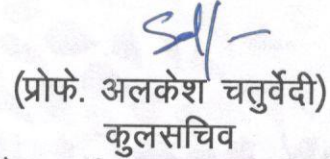 Sd/-
(प्रोफे. अलकेश चतुर्वेदी)
कुलसचिव